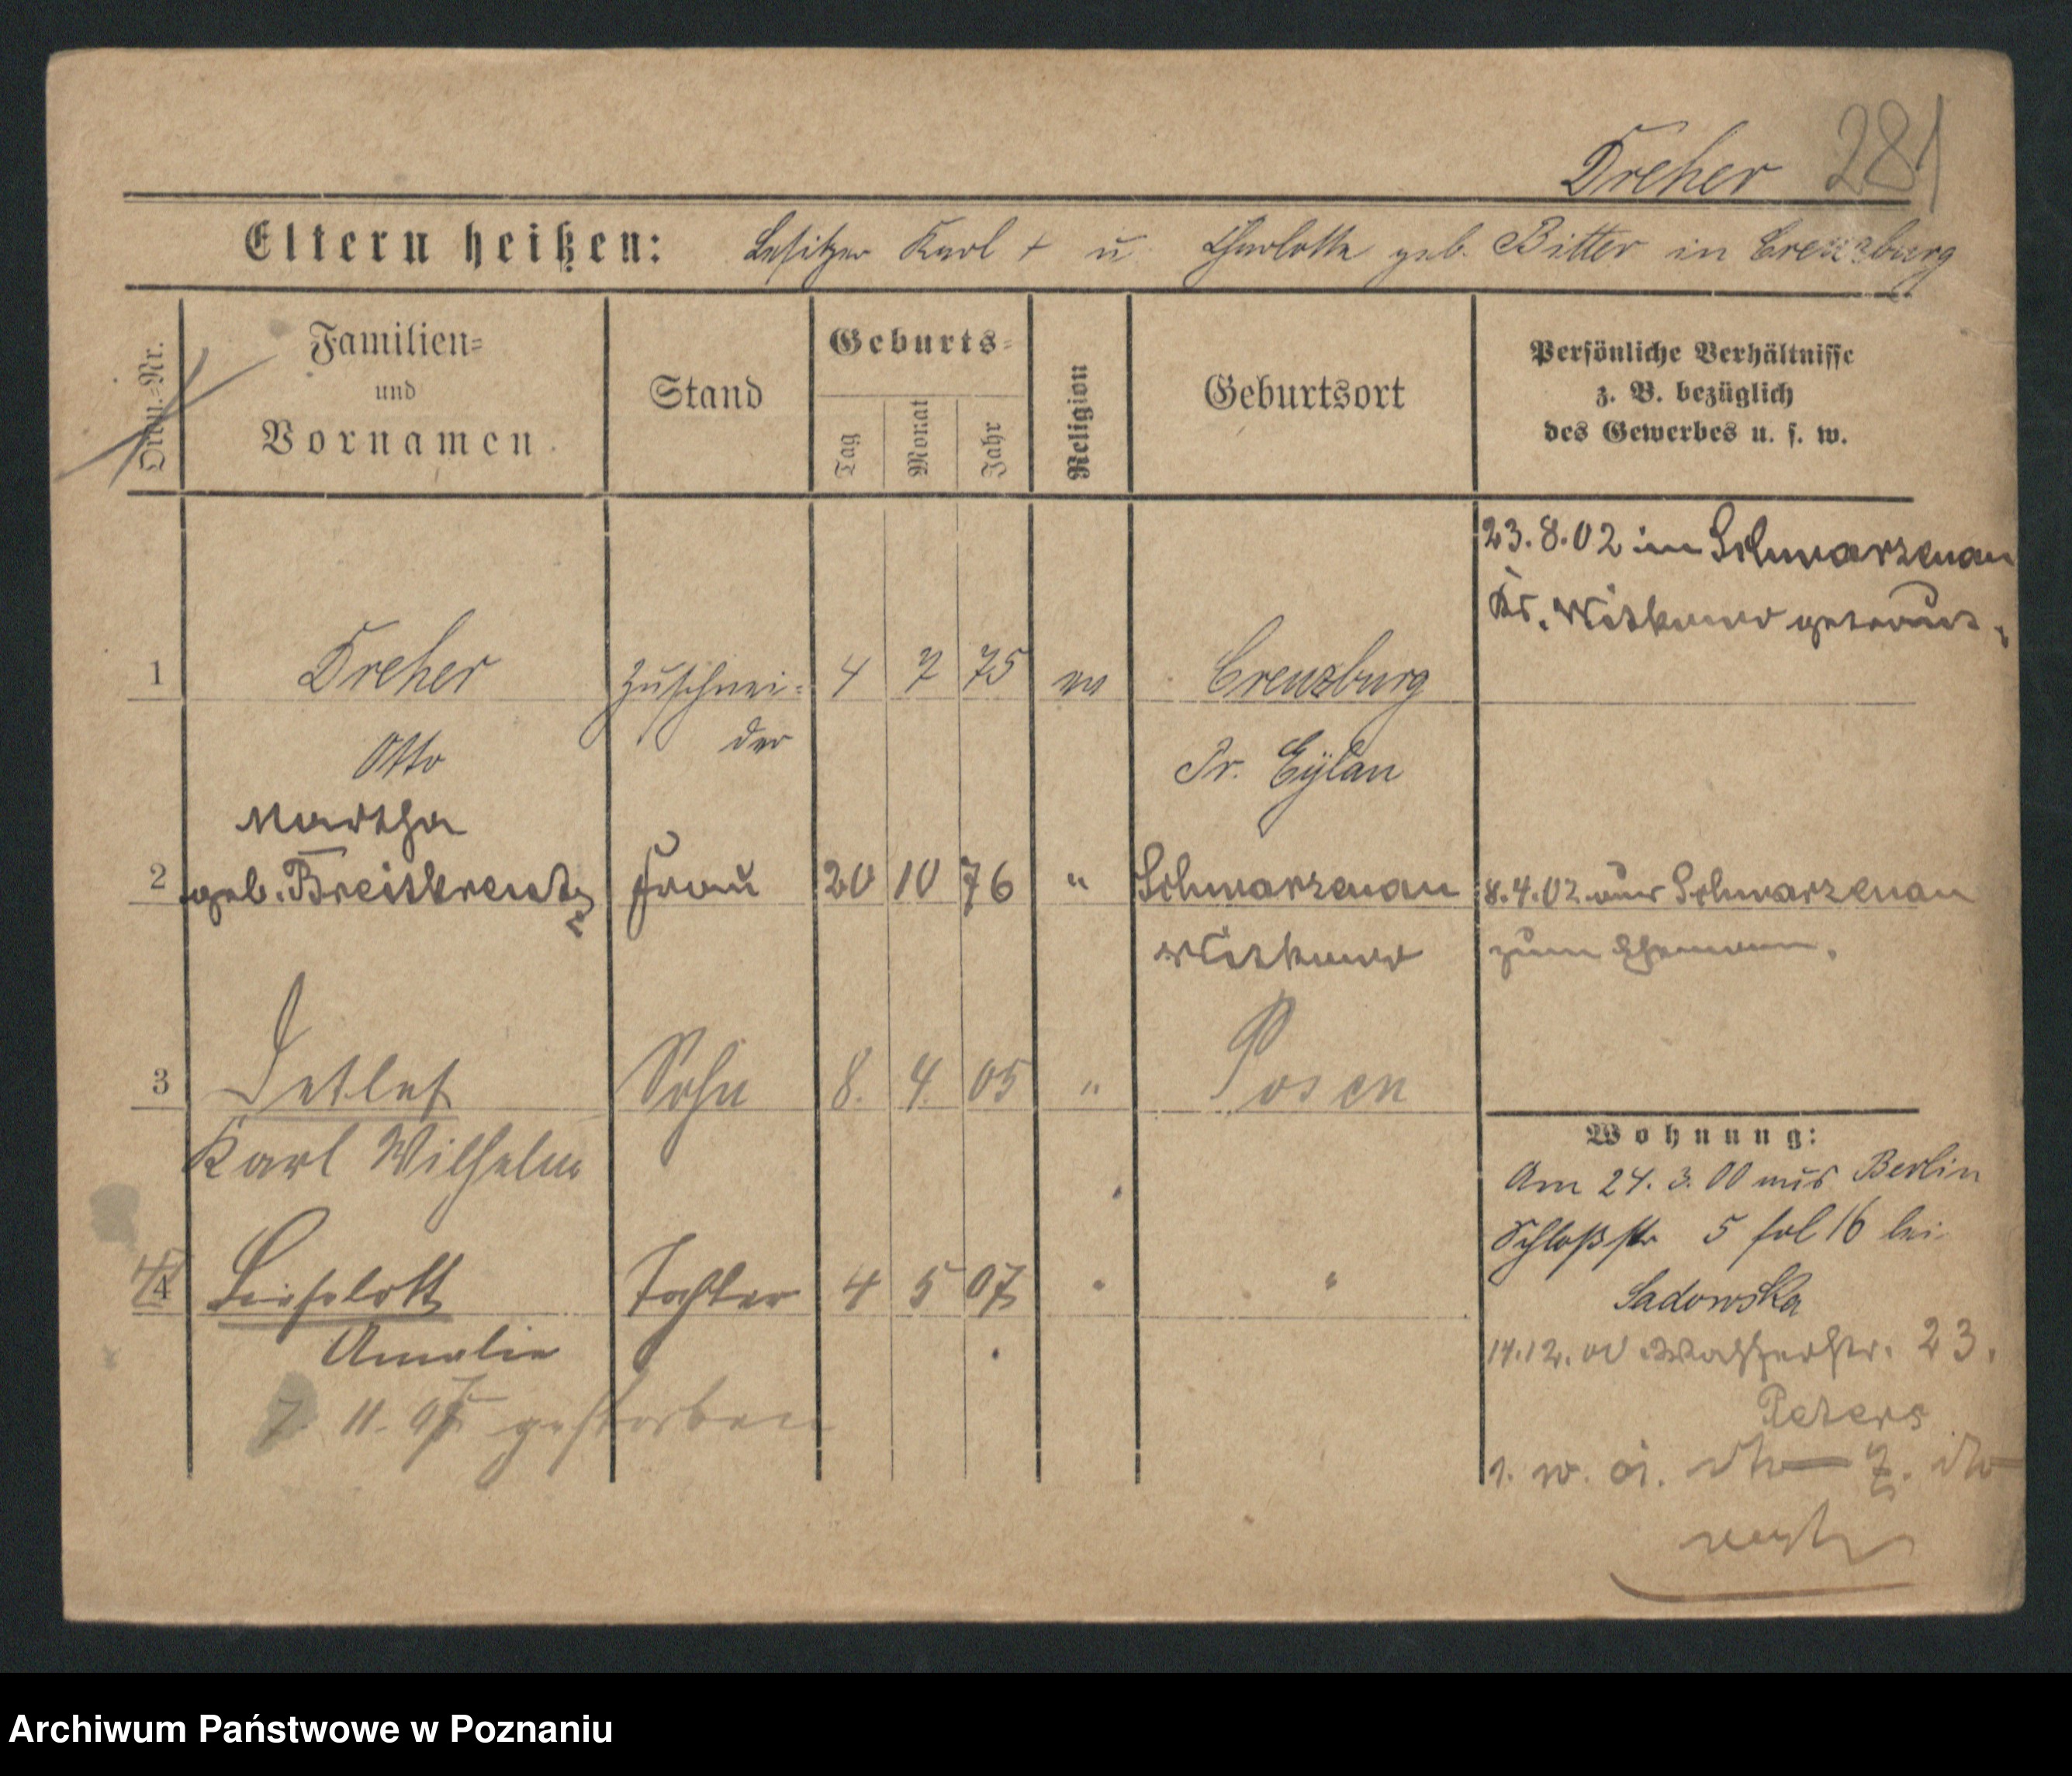 Dreher 281
Eltern heißen: Besitzer Karl + u Charlotte geb. Bitter in Creuzburg
Ordn.=Nr.
Familien=
und
Vornamen
Stand
Geburts=
Tag
Monat
Jahr
Religion
Geburtsort
Persönliche Verhältnisse
z. B. bezüglich
des Gewerbes u. s. w.
23.8.02 in Schwarzenau
Kr. Witkowo getraut.
1 Dreher Zuschnei= 4 7 75 ev Creuzburg
Otto der Pr. Eylau
Martha
2 geb. Breitkreutz Frau 20 10 76 " Schwarzenau 8.4.02 aus Schwarzenau
Witkowo zum Ehemann.
3 Detlef Sohn 8. 4. 05 " Posen
Karl Wilhelm
Wohnung:
Am 24. 3. 00 aus Berlin
Schloßstr 5 fol 16 bei
4 Lieselott Tochter 4 5 07 " "
Sadowska
Amalie
14.12.00 Wasserstr. 23.
7. 11. 07 gestorben
Peters